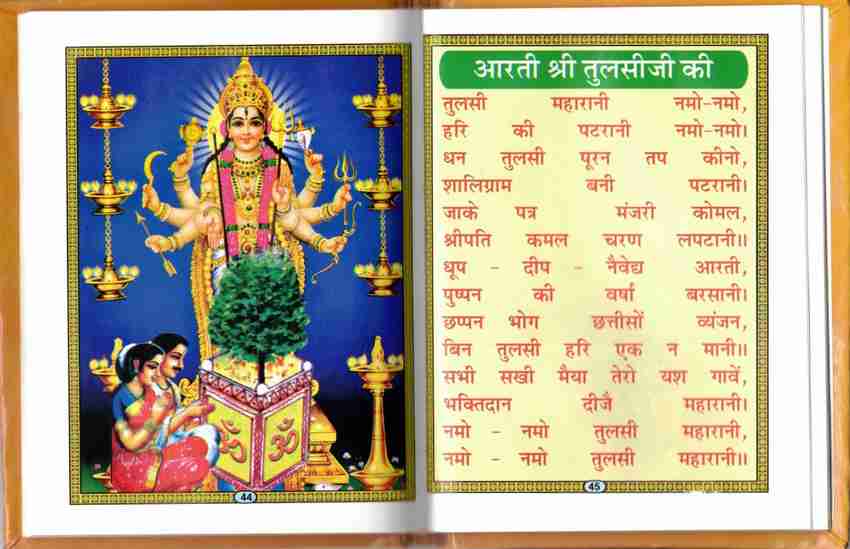 ॐ ॐ
44
आरती श्री तुलसीजी की
तुलसी महारानी नमो-नमो,
हरि की पटरानी नमो-नमो।
धन तुलसी पूरन तप कीनो,
शालिग्राम बनी पटरानी।
जाके पत्र मंजरी कोमल,
श्रीपति कमल चरण लपटानी॥
धूप - दीप - नैवेद्य आरती,
पुष्पन की वर्षा बरसानी।
छप्पन भोग छत्तीसों व्यंजन,
बिन तुलसी हरि एक न मानी॥
सभी सखी मैया तेरो यश गावें,
भक्तिदान दीजै महारानी।
नमो - नमो तुलसी महारानी,
नमो - नमो तुलसी महारानी॥
45